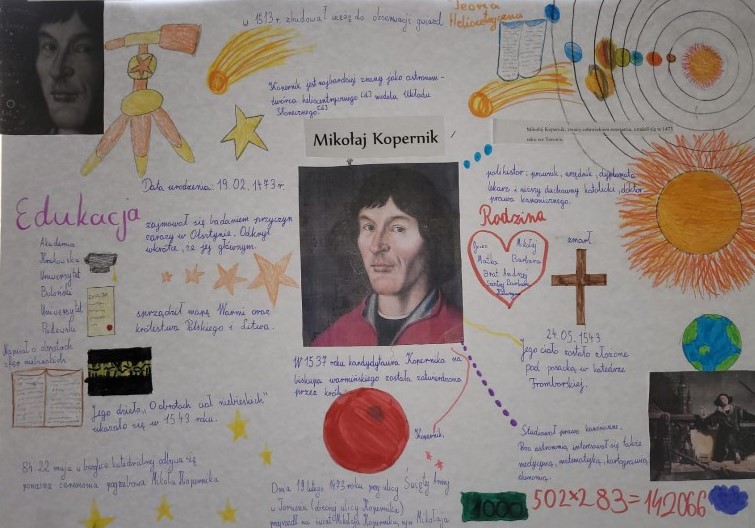 w 1513 r. zbudował wieżę do obserwacji gwiazd
Teoria
Heliocentryczna
Kopernik jest najbardziej znany jako astronom-
twórca heliocentrycznego modelu Układu
Słonecznego.
Mikołaj Kopernik
Mikołaj Kopernik, zwany człowiekiem renesansu, urodził się w 1473
roku we Toruniu.
Data urodzenia: 19.02.1473 r.
polihistor: prawnik, urzędnik, dyplomata
lekarz i niższy duchowny katolicki, doktor
prawa kanonicznego.
Edukacja
Akademia
Krakowska
Uniwersytet
Boloński
Uniwersytet
Padewski
zajmował się badaniem przyczyn
zarazy w Olsztynie. Odkrył
że jej głównym.
sporządził mapę Warmii oraz
królestwa Polskiego i Litwy.
Rodzina
Ojciec Mikołaj
Matka Barbara
Brat Andrzej
Siostry Barbara
zmarł
24.05.1543
Jego ciało zostało złożone
pod posadzką w katedrze
Fromborskiej.
Napisał o obrotach
sfer niebieskich
Jego dzieło „O obrotach ciał niebieskich"
ukazało się w 1543 roku.
W 1537 roku kandydatura Kopernika na
biskupa warmińskiego została zatwierdzona
przez króla
Kopernik,
Studiował prawo kanoniczne.
Poza astronomią, interesował się także
medycyną, matematyką, kartografią,
ekonomią.
22 maja w bazylice katedralnej odbywa się
ponowna ceremonia pogrzebowa Mikołaja Kopernika
Dnia 19 lutego 1473 roku przy ulicy Świętej Anny
w Toruniu (obecnej ulicy Kopernika)
przyszedł na świat Mikołaj Kopernik, syn Mikołaja
1000
502x283=142066